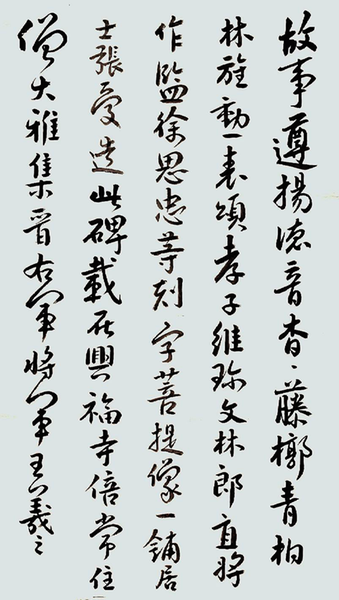 故事遵揚德音杳〻藤槨青柏
林旌動一表頌孝子維珎文林郎直將
作監徐思忠等刻字菩提像一鋪居
士張愛造此碑載在興福寺倍常住
僧大雅集晉右軍將軍王羲之